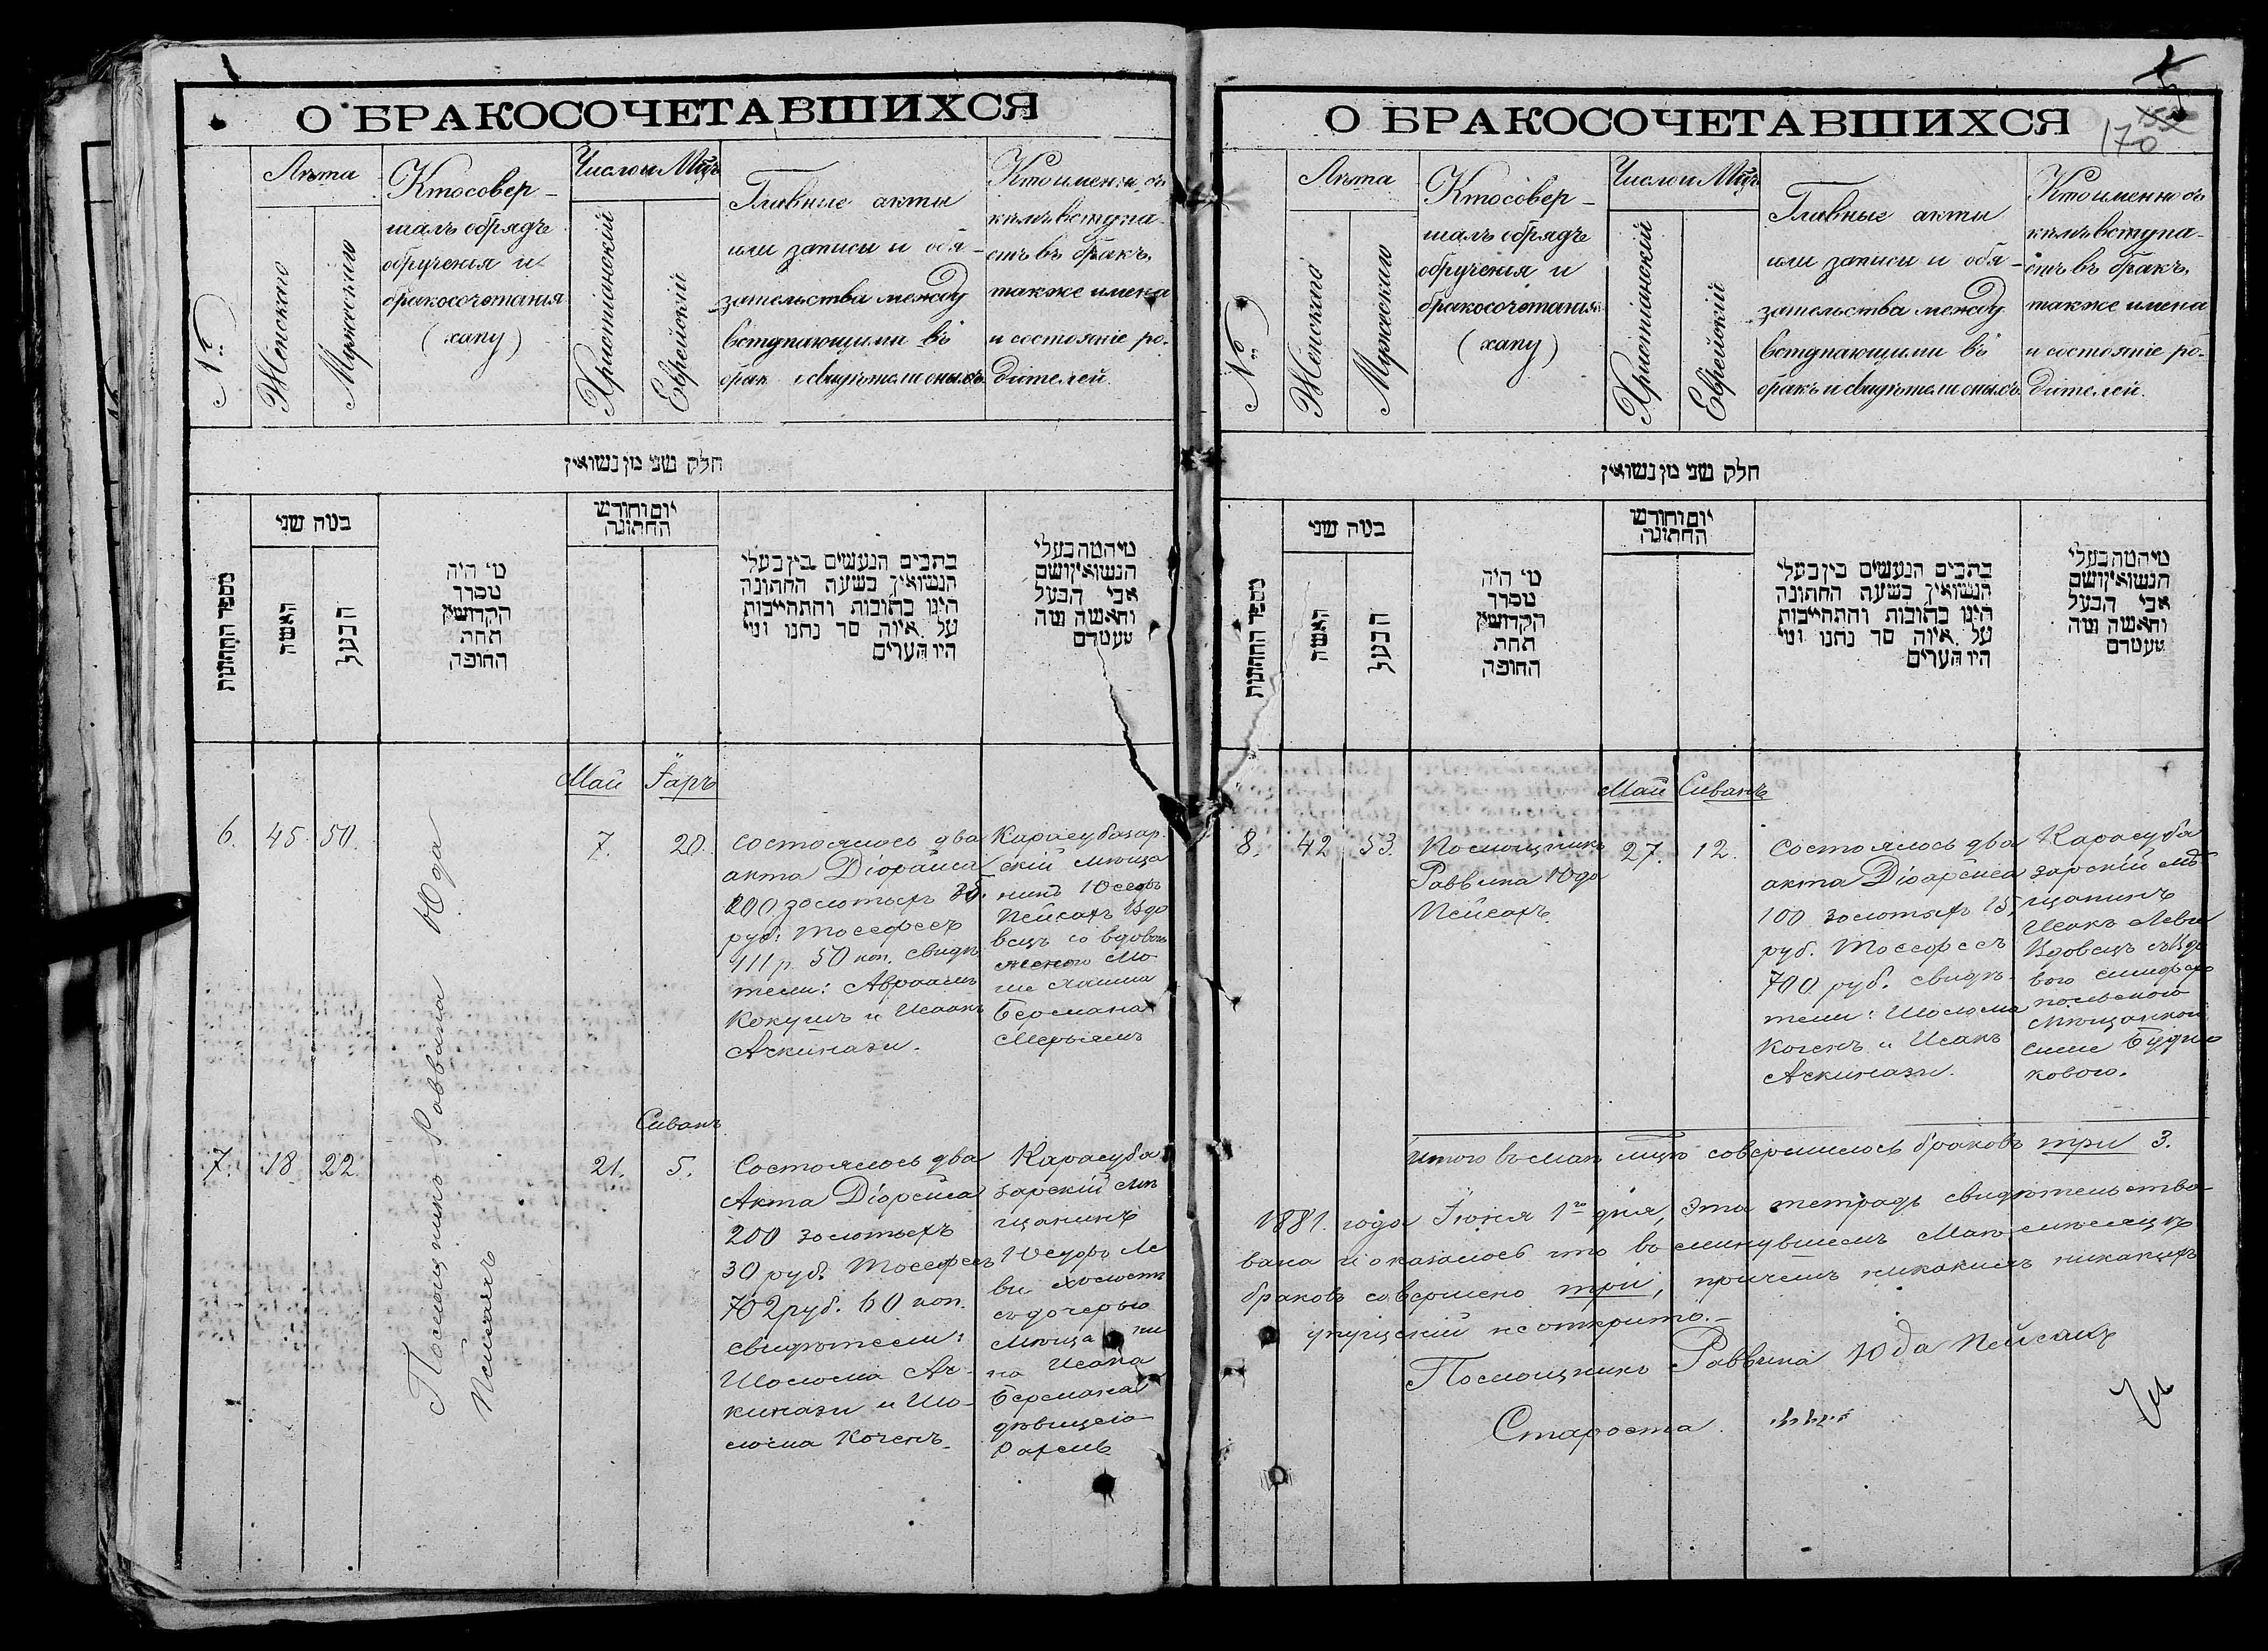 О БРАКОСОЧЕТАВШИХСЯ
№
Лѣта
Женскаго
Мужескаго
Кто совер-
шалъ обрядъ
обрученія и
бракосочетанія
(хапу)
Число и Мцъ
Христіанскій
Еврейскій
Главные акты
или записи и обя-
зательства между
вступающими въ
брак и свидѣтели оныхъ
Кто именно съ
кѣмъ вступа-
етъ въ бракъ,
также имена
и состояніе ро-
дителей.
חלק שני מן נשואין
מספר החתונות
כמה שני
האשה
הבעל
מי היה
מסדר
הקדושין
תחת
החופה
יום וחודש
החתונה
כתבים הנעשים בין בעלי
הנשואין בשעת החתונה
היינו כתובות והתחייבות
על איזה סך נתנו ומי
היו העדים
מי המה בעלי
הנשואין ושם
אבי הבעל
והאשה ומה
מעמדם
Май Іаръ
6. 45 50.
7. 20.
Помощникъ Раввина Юда
Пейсахъ
состоялось два
акта Діорайса
200 золотыхъ
руб: Тосефесъ
111 р. 50 коп. свидѣ
тели: Авраамъ
Кокушъ и Исаакъ
Ачкинази.
Карасубазар
скій мѣща
нинъ Юсефъ
Пейсахъ Вдо
вецъ со вдовою
Бермана
Мерьямъ
Сиванъ
7. 18 22.
21. 5.
Состоялось два
Акта Діорейса
200 золотыхъ
30 руб. Тосефесъ
702 руб. 60 коп.
свидѣтели:
Шолома Ач-
кинази и Шо-
лома Коченъ.
Карасуба
зарскій мѣ
щанинъ
Юсуфъ Ле
ви холостъ
съ дочерью
мѣща ни
на Исака
Бермана
дѣвицею
Рахель
О БРАКОСОЧЕТАВШИХСЯ
170
№
Лѣта
Женскаго
Мужескаго
Кто совер-
шалъ обрядъ
обрученія и
бракосочетанія
(хапу)
Число и Мцъ
Христіанскій
Еврейскій
Главные акты
или записи и обя-
зательства между
вступающими въ
бракъ и свидѣтели оныхъ
Кто именно съ
кѣмъ вступа-
етъ въ бракъ,
также имена
и состояніе ро-
дителей.
חלק שני מן נשואין
מספר החתונות
כמה שני
האשה
הבעל
מי היה
מסדר
הקדושין
תחת
החופה
יום וחודש
החתונה
כתבים הנעשים בין בעלי
הנשואין בשעת החתונה
היינו כתובות והתחייבות
על איזה סך נתנו ומי
היו העדים
מי המה בעלי
הנשואין ושם
אבי הבעל
והאשה ומה
מעמדם
Май Сиванъ
8. 42 53.
Помощникъ
Раввина Юда
Пейсахъ.
27. 12.
Состоялось два
акта Діоарейса
100 золотыхъ 15,
руб. Тосефесъ
700 руб. свидѣ
тели: Шолома
Коченъ и Исакъ
Ачкинази.
Карасуба
зарскій мѣ
щанинъ
Исакъ Леви
Вдовецъ съ Вдо
вою симферо
польскою
мѣщанкою
Симе Будни
ковою.
итого въ маѣ мцѣ совершилось браковъ три 3.
1881. года Іюня 1го дня, Эта тетрадь свидѣтельство-
вана и оказалось что въ минувшемъ Маѣ мѣсяцѣ
браковъ совершено три, причемъ никакихъ никакихъ
упущеній не открыто.-
Помощникъ Раввина Юда Пейсахъ
Староста